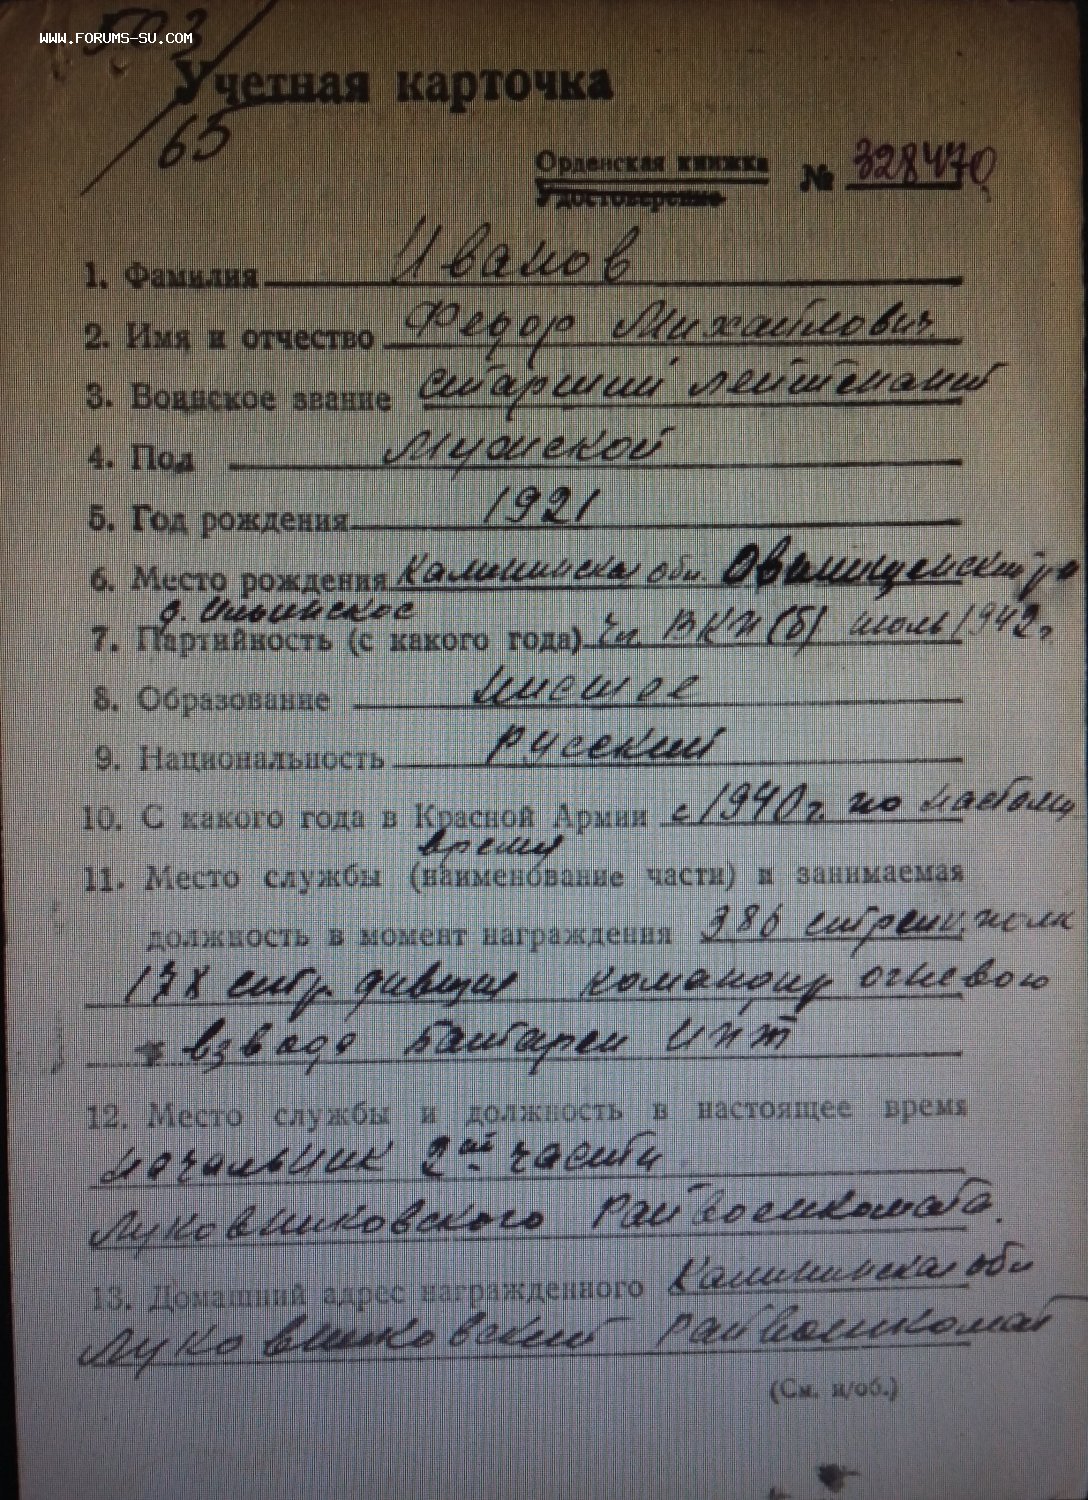 WWW.FORUMS-SU.COM
Учетная карточка
65
Орденская книжка № 328470
Удостоверение
1. Фамилия Иванов
2. Имя и отчество Федор Михайлович
3. Воинское звание старший лейтенант
4. Пол Мужской
5. Год рождения 1921
6. Место рождения Калининская обл. Овинищенский р-н
д. Ильинское
7. Партийность (с какого года) чл. ВКП(б) июль 1942 г
8. Образование
9. Национальность русский
10. С какого года в Красной Армии с 1940 г. по настоящ
время
11. Место службы (наименование части) и занимаемая
должность в момент награждения 386 стрелк. полк
178 стр. дивизия командир огневого
взвода батареи
12. Место службы и должность в настоящее время
начальник 2ой части
Луковниковского Райвоенкомата.
13. Домашний адрес награжденного Калининская обл
Луковниковский райвоенкомат
(См. н/об.)